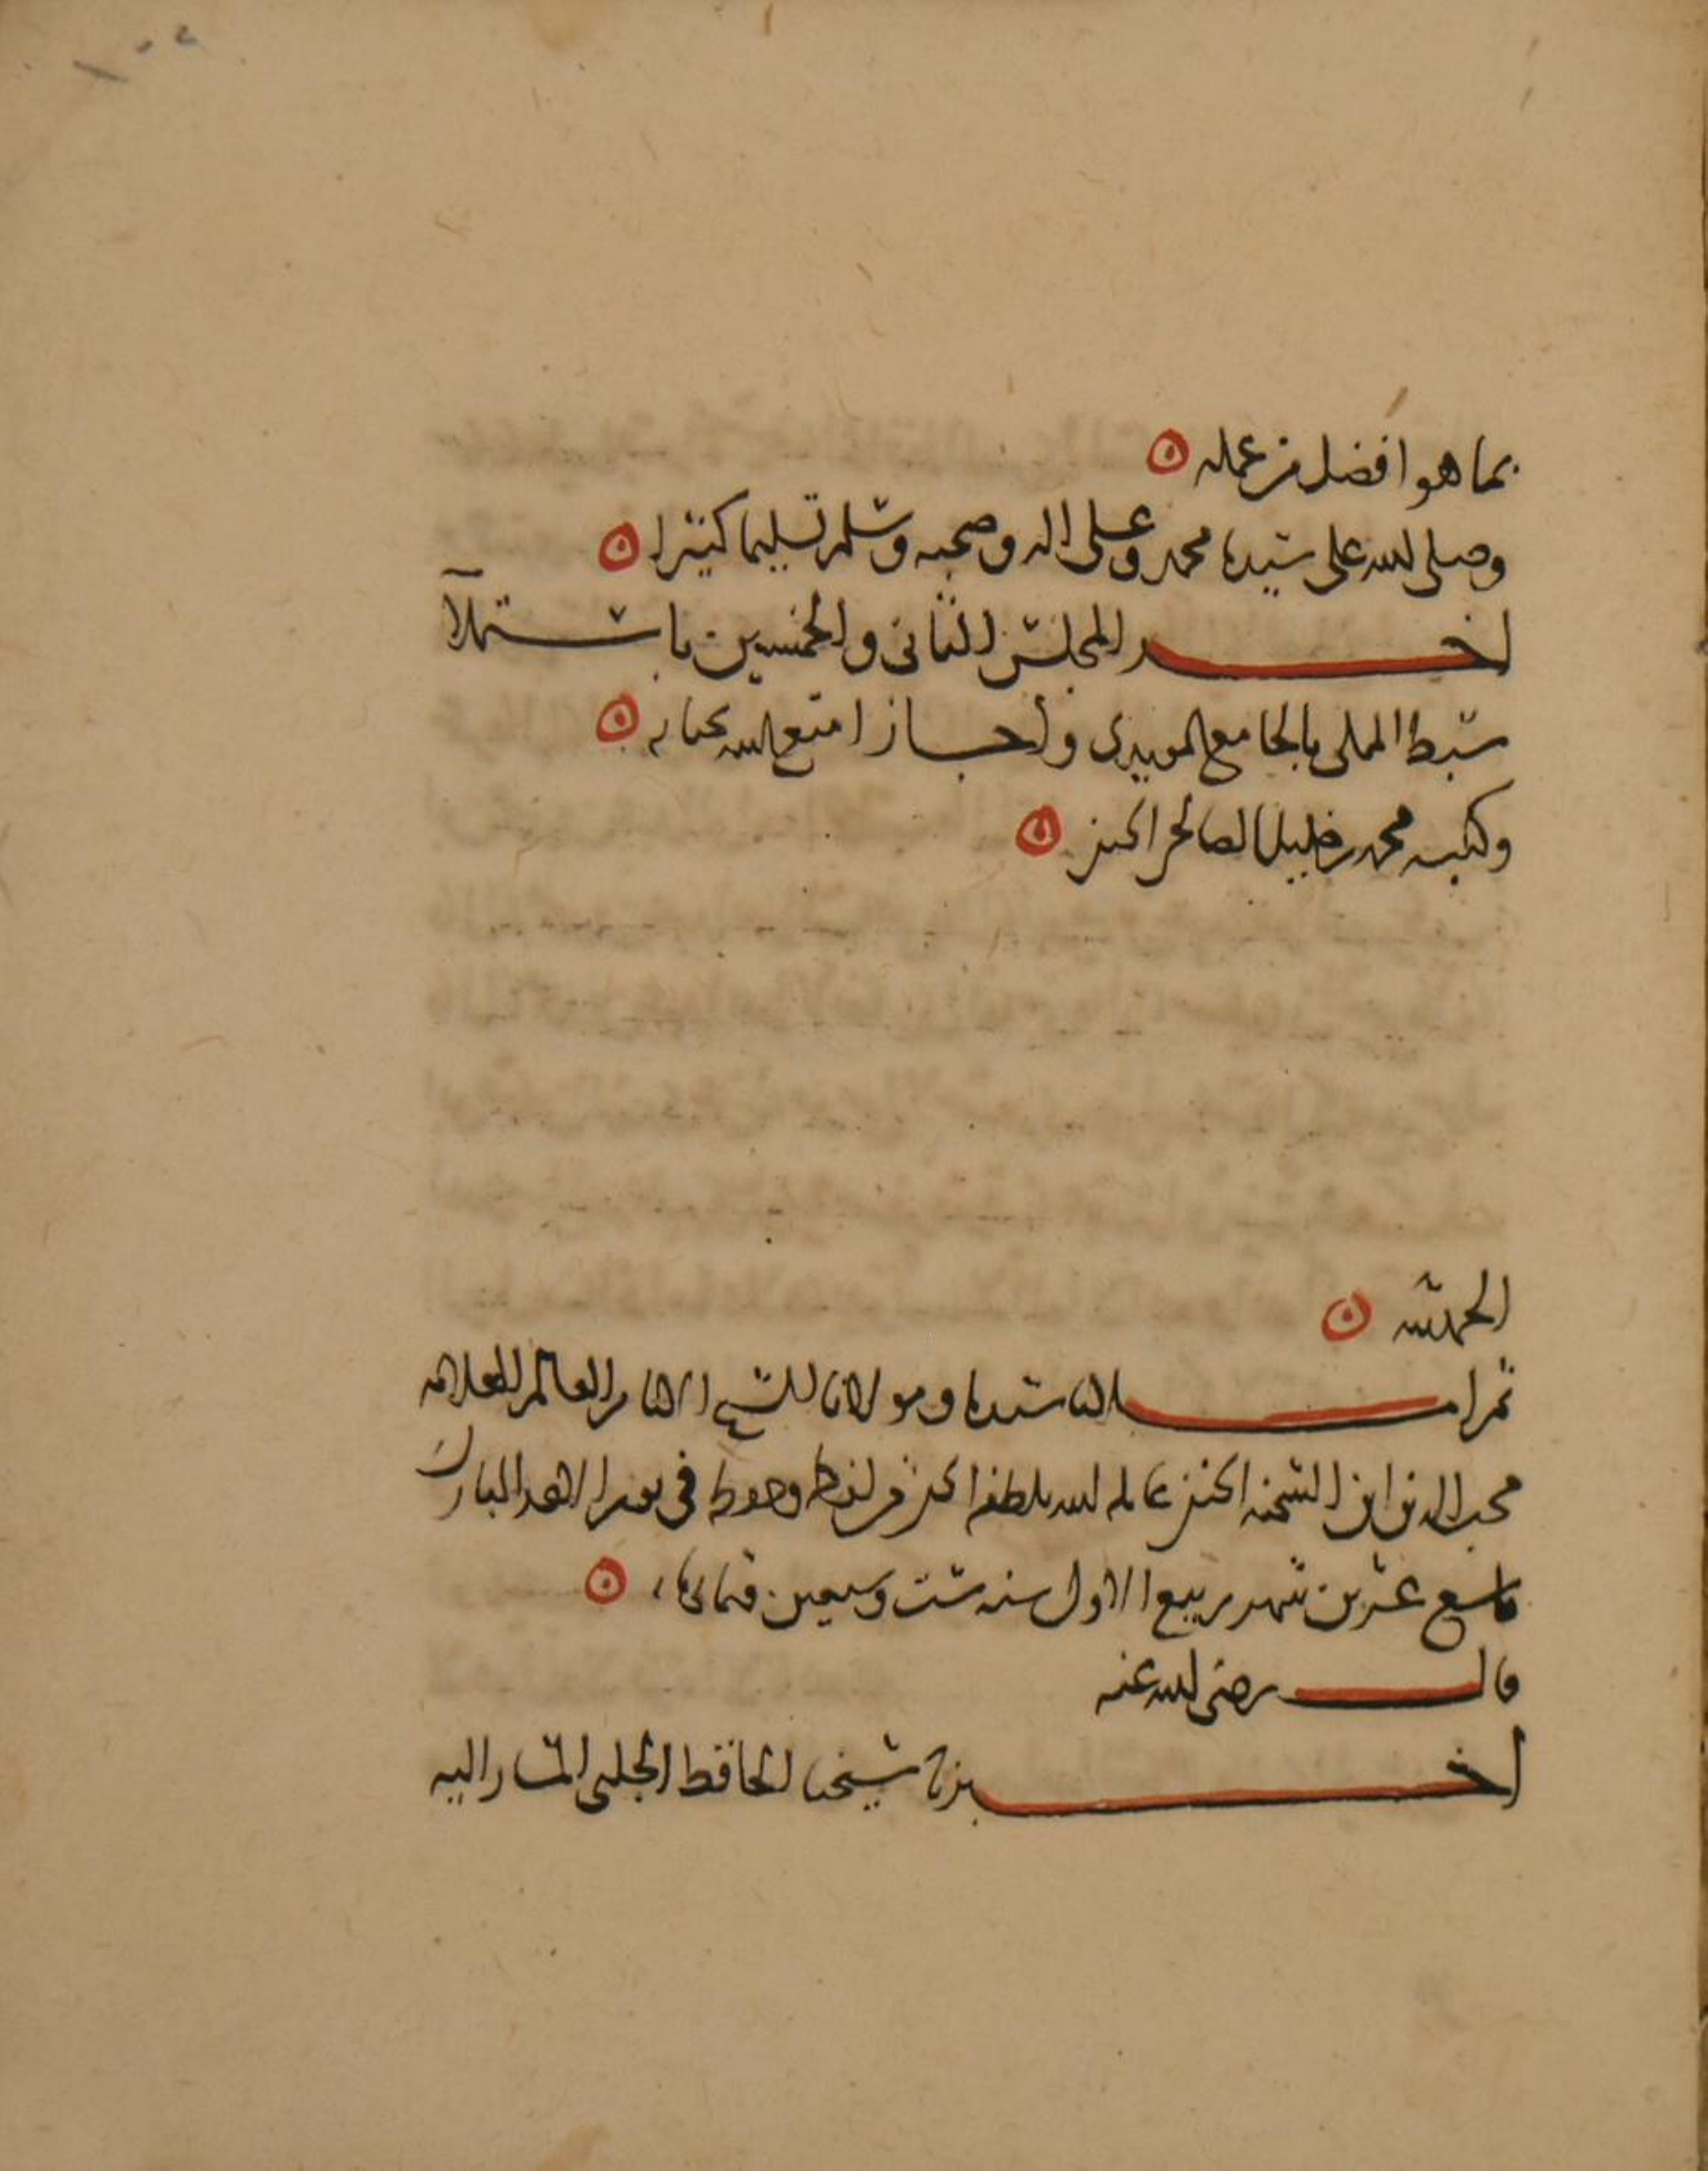 بما هو افضل من عمله
وصلى الله على سيدنا محمد وعلى اله وصحبه وسلم تسليما كثيرا
اخر المجلس الثاني والخمسين باستملا
سبط المملي بالجامع المويدي واجاز امتع الله بحياته
وكتبه محمد بن خليل الصالحي الحنفي
الحمد لله
ثم املا لنا سيدنا ومولانا الشيخ الامام العالم العلامه
محب الدين ابن الشحنه الحنفي عامله الله بلطفه الخفي من لفظه وحفظه في يوم الاحد المبارك
تاسع عشرين شهر ربيع الاول سنه ست وسبعين وثمانمايه
قال رضي الله عنه
اخبرنا شيخنا الحافظ الحلبي المشار اليه